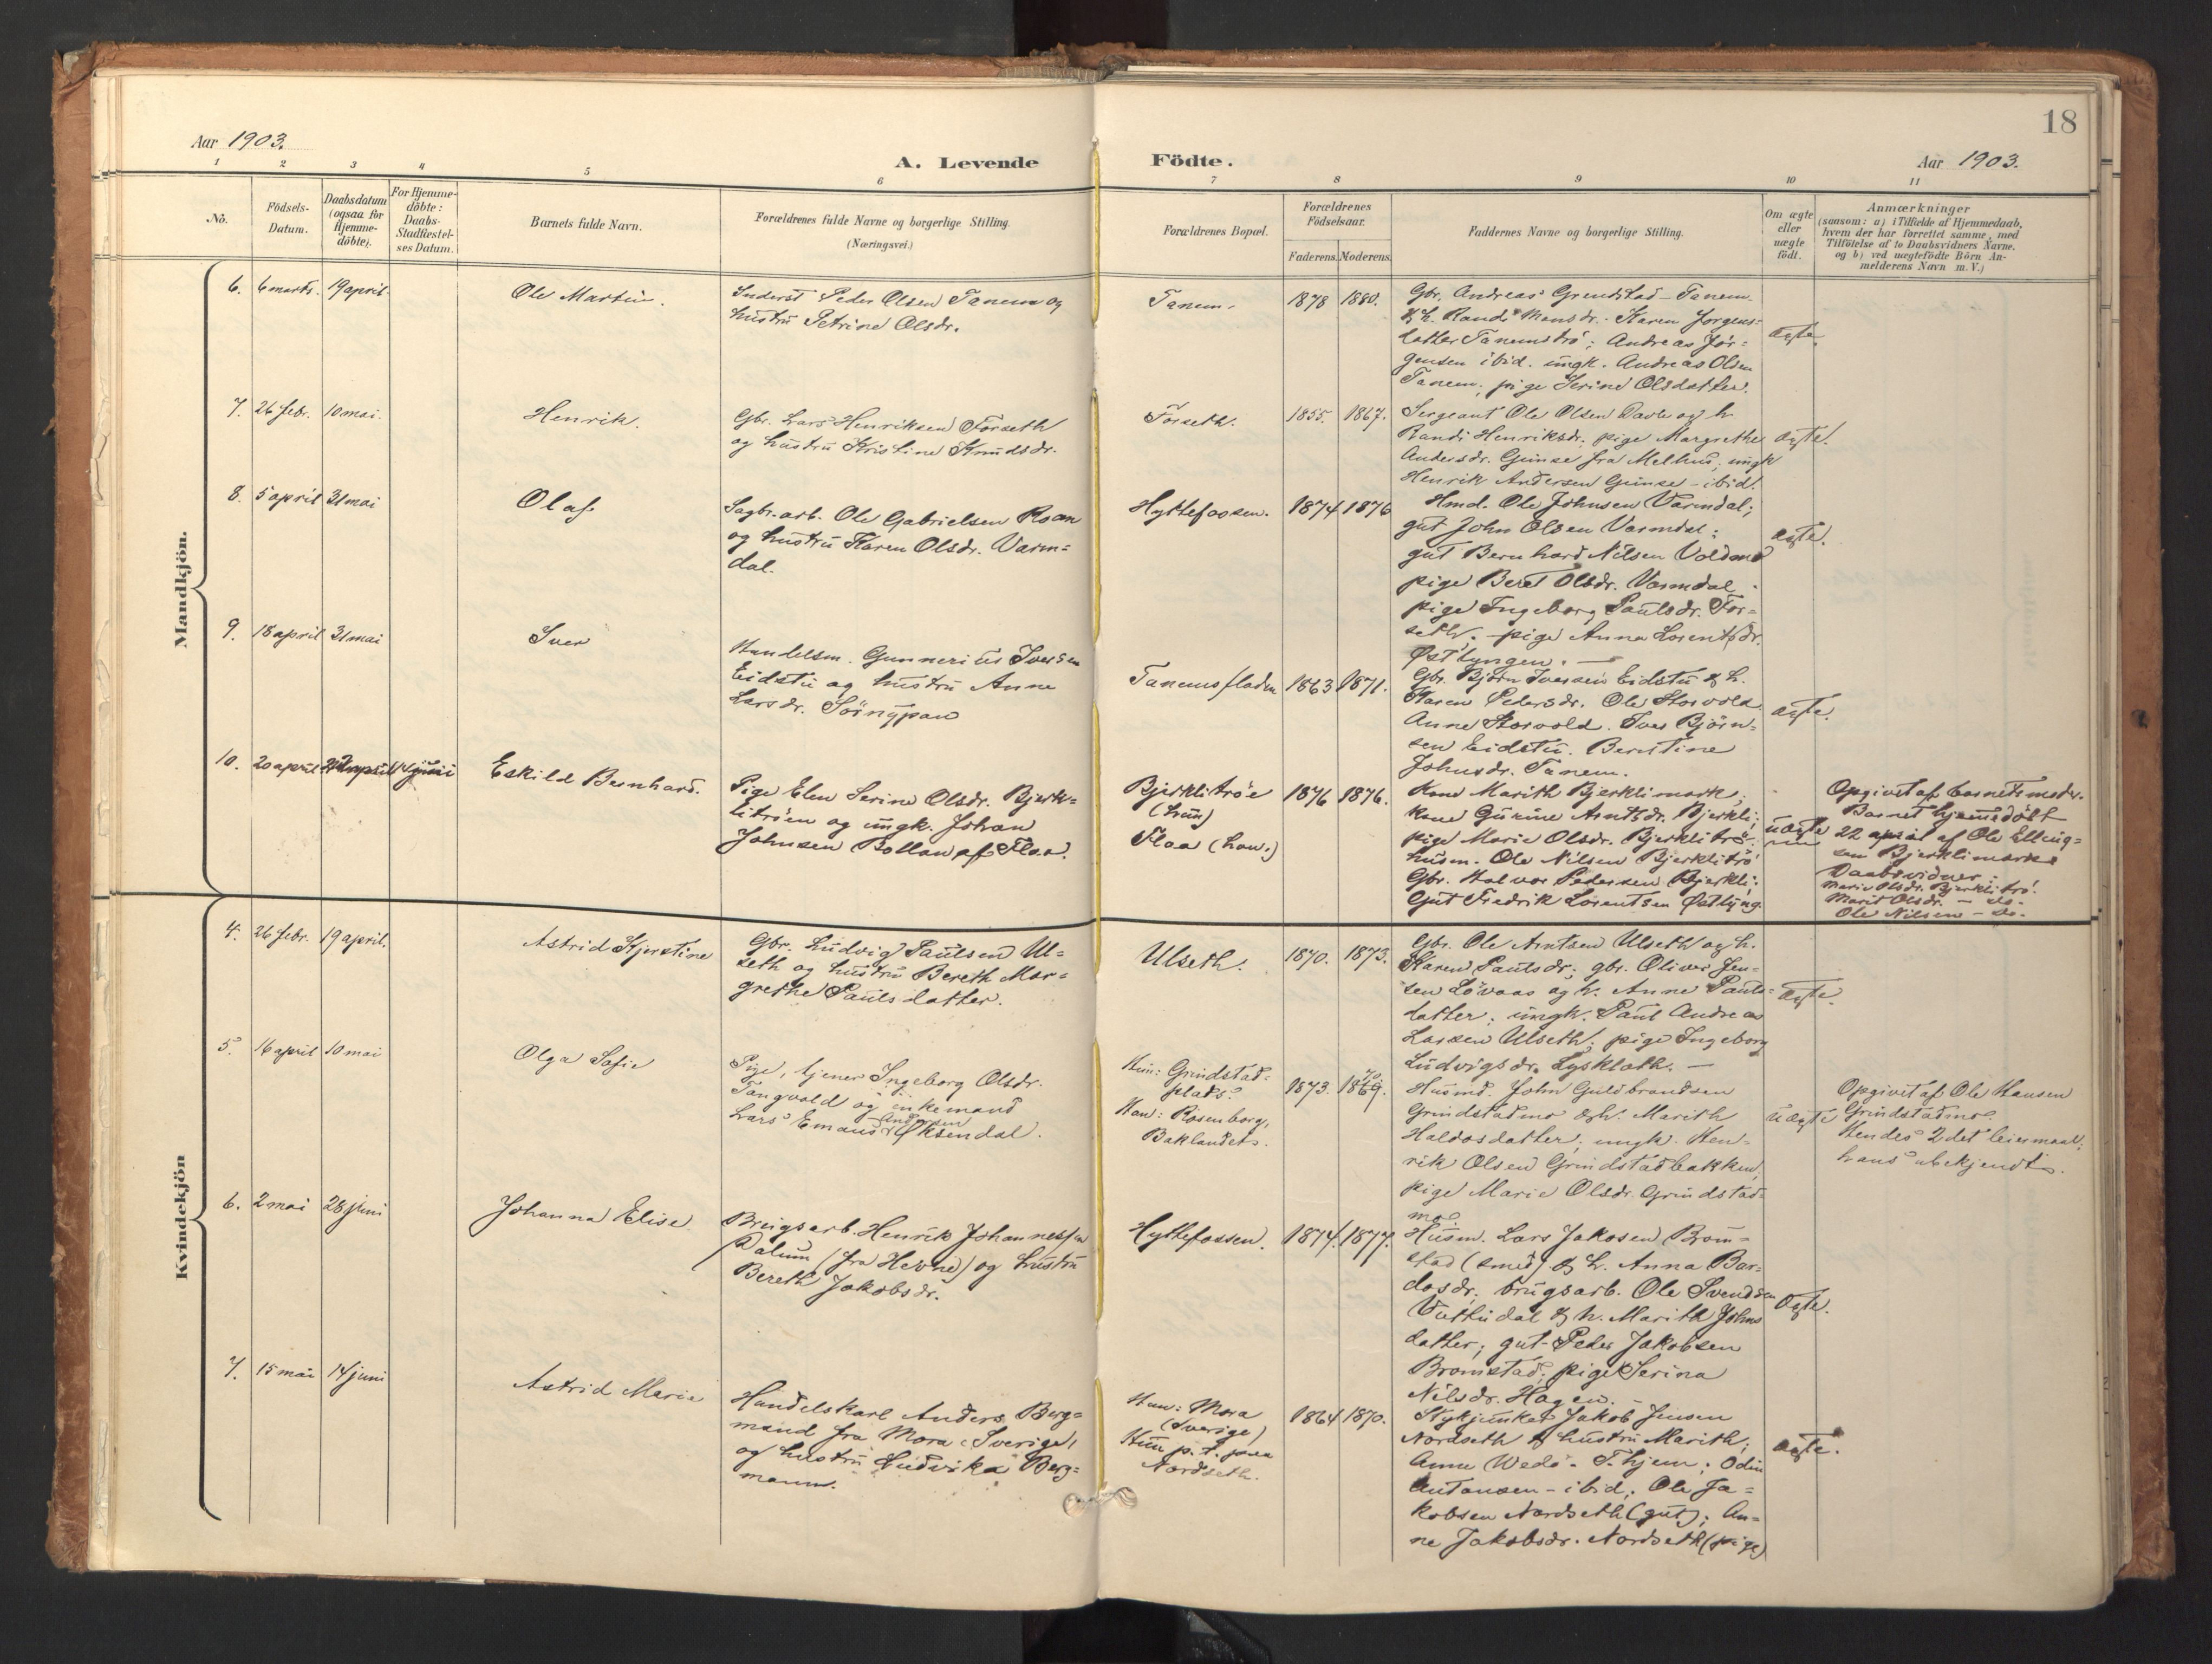 18
Aar 1903.
A. Levende
Födte.
Aar 1903.
1 2 3 4 5 6 7 8 9 10 11
No.
Födsels-
Datum.
Daabsdatum
(ogsaa for
Hjemme-
döbte).
For Hjemme-
döbte:
Daabs-
Stadfæstel-
ses Datum.
Barnets fulde Navn.
Forældrenes fulde Navne og borgerlige Stilling.
(Næringsvei.)
Forældrenes Bopæl.
Forældrenes
Födselsaar.
Faderens. Moderens.
Faddernes Navne og borgerlige Stilling.
Om ægte
eller
uægte
födt.
Anmærkninger
(saasom: a) i Tilfælde af Hjemmedaab,
hvem der har forrettet samme, med
Tilföielse af to Daabsvidners Navne.
og b) ved uægtefödte Börn An-
melderens Navn m. V.)
Mandkjön.
6. 6 marts. 19 april.
Ole Martin.
Inderst Peder Olsen Tanem og
hustru Petrine Olsdr.
Tanem.
1878 1880.
Gbr. Andreas Grendstad - Tanem
& h. Randi Monsdr. Karen Jørgens-
datter Tanemstrø; Andreas Jör-
gensen ibid. ungk. Andreas Olsen
Tanem; pige Serine Olsdatter.
ægte.
7. 26 febr. 10 mai.
Henrik.
Gbr. Lars Henriksen Forseth
og hustru Kristine Knudsdr.
Forseth.
1855. 1867.
Sergeant Ole Olsen Davle og h.
Randi Henriksdr. pige Margrethe
Andersdr. Gimse fra Melhus; ungk
Henrik Andersen Gimse - ibid.
ægte.
8. 5 april 31 mai
Olaf.
Sagbr.arb. Ole Gabrielsen Roan
og hustru Karen Olsdr. Varm-
dal.
Hyttefossen.
1874 1876
Hmd. Ole Johnsen Varmdal;
gut John Olsen Varmdal;
gut Bernhard Nilsen Voldmo
pige Beret Olsdr. Varmdal.
pige Ingeborg Paulsdr. For-
seth. - pige Anna Lorentsdr.
Østlyngen. -
ægte.
9. 18 april 31 mai
Iver
Handelsm. Gunnerius Iversen
Eidstu og hustru Anne
Larsdr. Sörnypan
Tanemsfladen
1863 1871.
Gbr. Björn Iversen Eidstu & h.
Karen Pedersdr. Ole Storvold
Anne Storvold. Iver Björn-
sen Eidstu. Berntine
Johnsdr. Tanem.
ægte.
10. 20 april 22 april 14 juni
Eskild Bernhard.
Pige Elen Serine Olsdr. Bjerk-
litröen og ungk. Johan
Johnsen Bollan af Flaa.
Bjerklitröe
(hun)
Flaa (han.)
1876 1876.
Kone Marith Bjerklimark;
kone Gurine Arntsdr. Bjerkli;
pige Marie Olsdr. Bjerklitrö.
husm. Ole Nilsen Bjerklitrö
Gbr. Halvor Pedersen Bjerkli;
Gut Fredrik Lorentsen Østlyng.
uægte
Opgivet af barnets moder.
Barnet hjemmedöbt
22 april af Ole Elling-
sen Bjerklimark.
Daabsvidner:
Marie Olsdr. Bjerklitrö.
Marit Olsdr. - do.
Ole Nilsen - do.
Kvindekjön
4. 26 febr. 19 april.
Astrid Kjerstine
Gbr. Ludvig Paulsen Ul-
seth og hustru Bereth Mar-
grethe Paulsdatter.
Ulseth.
1870. 1873.
Gbr. Ole Arntsen Ulseth og h.
Karen Paulsdr; gbr. Oliver Jen-
sen Lövaas og h. Anne Pauls-
datter; ungk. Paul Andreas
Larsen Ulseth; pige Ingeborg
Ludvigsdr. Lysklæth. -
ægte.
5. 16 april 10 mai
Olga Sofie
Pige, tjener Ingeborg Olsdr.
Tangvold og enkemand
Lars Emanuel Andersen Øksendal.
Hun: Grindstad-
plads.
Han: Rosenborg,
Baklandet.
1873. 1869. 70.
Husmd. John Guldbrandsen
Grindstadmo og h. Marith
Haldosdatter; ungk. Hen-
rik Olsen Grindstadbakken,
pige Marie Olsdr. Grindstad-
mo.
uægte
Opgivet af Ole Hansen
Grindstadmo.
Hendes 2det leiermaal.
hans ubekjendt.
6. 2 mai 28 juni
Johanna Elise
Brugsarb. Henrik Johannessen
Dalum (fra Hevne) og hustru
Bereth Jakobsdr.
Hyttefossen.
1874. 1877.
Husm. Lars Jakosen Brom-
stad (smed) & h. Anna Bar-
dosdr; brugsarb. Ole Svendsen
Vuttudal & h. Marith Johns
datter; gut Peder Jakobsen
Bromstad; pige Serina
Nilsdr. Hagen. -
ægte.
7. 15 mai 14 juni
Astrid Marie
Handelskarl Anders Berg-
mand fra Mora (Sverige)
og hustru Ludvika Berg-
mann.
Han: Mora
(Sverige)
Hun p.t. paa
Nordseth.
1864 1870.
Stykjunker Jakob Jensen
Nordseth & hustru Marith;
Anne Wedö - T.hjem; Odin
Antonsen - ibid; Ole Ja-
kobsen Nordseth (gut); An-
ne Jakobsdr. Nordseth (pige)
ægte.